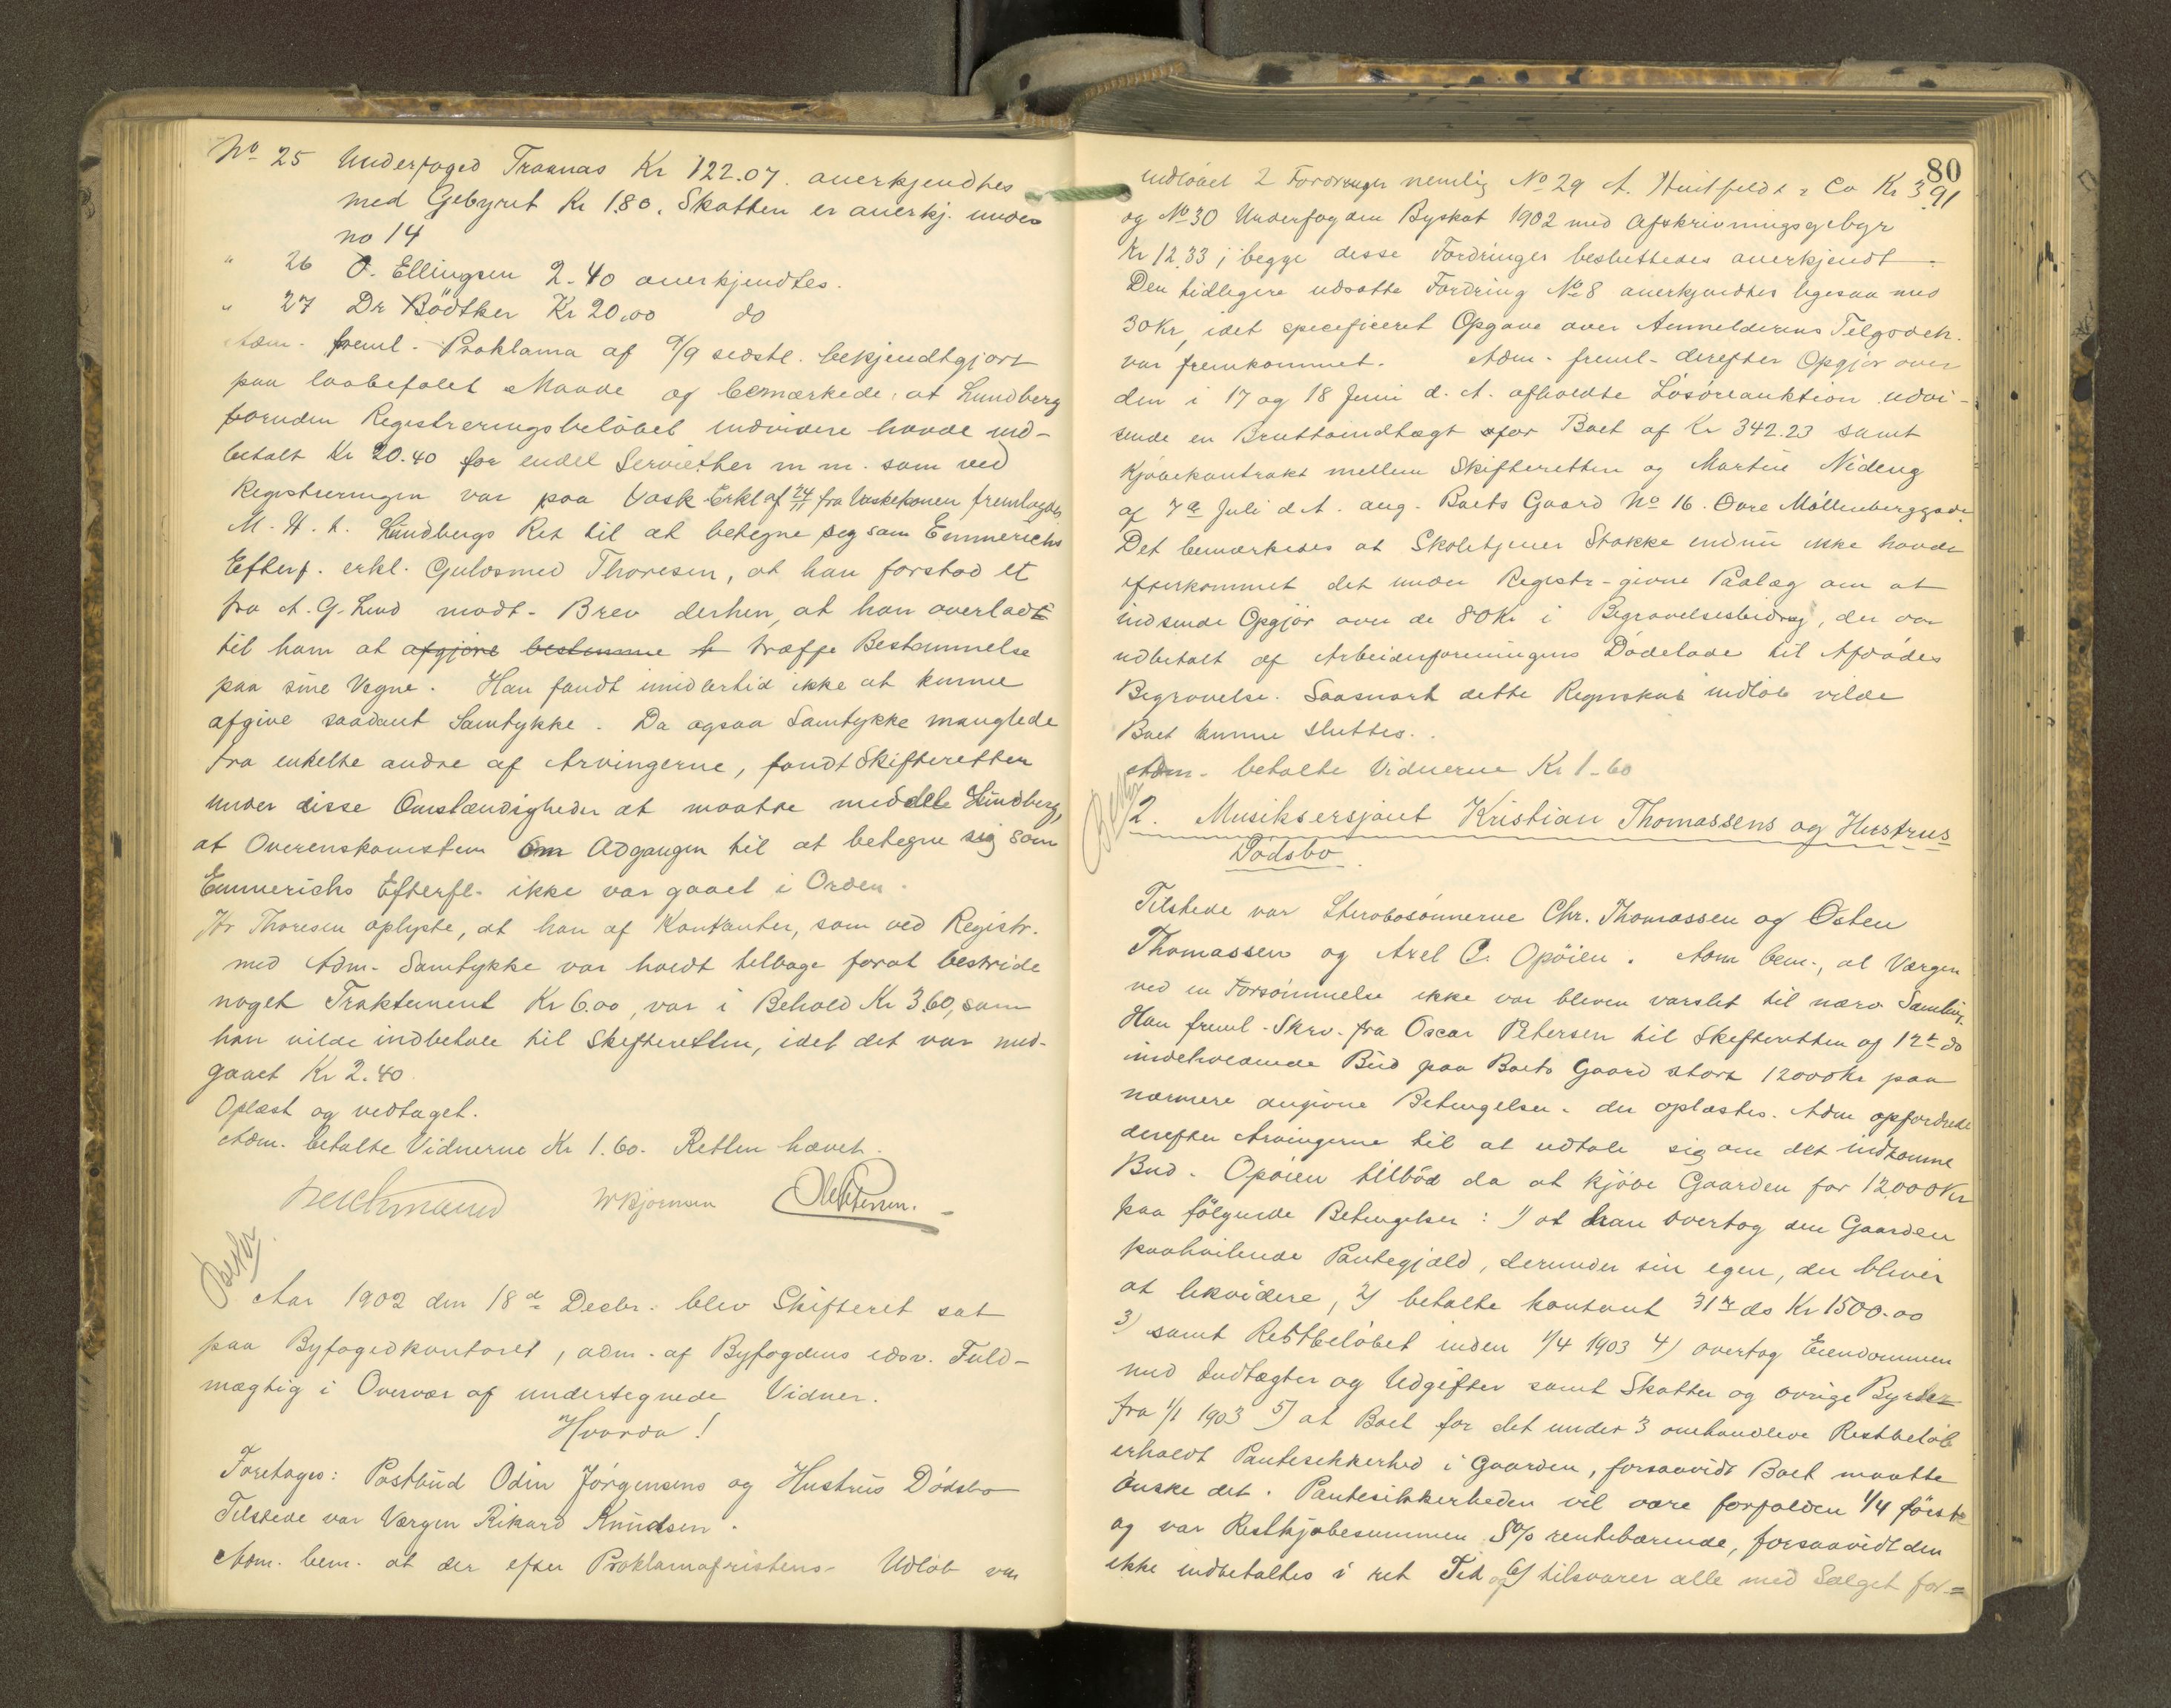 No 25 Underfoged Traanas Kr 122.07. anerkjendtes
med Gebyret Kr 1.80. Skatten er anerkj. under
no 14
" 26 O. Ellingsen 2.40 anerkjendtes.
" 27 Dr Bödtker Kr 20.00 do
Adm. freml. Proklama af 9/9 sidstl. bekjendtgjort
paa lovbefalet Maade og bemærkede, at Lundberg
foruden Registreringsbeløbet endvidere havde ind-
betalt Kr 20.40 for endel Servietter m m. som ved
Registreringen var paa Vask Erkl af 24/11 fra Vaskekonen fremlagdes
M. H. t. Lundbergs Ret til at betegne seg som Emmerichs
Efterf. erkl. Guldsmed Thoresen, at han forstod et
fra A. G. Lund modt. Brev derhen, at han overlod
til ham at afgjøre bestemme træffe Bestemmelse
paa sine Vegne. Han fandt imidlertid ikke at kunne
afgive saadant Samtykke. Da ogsaa Samtykke manglede
fra enkelte andre af Arvingerne, fandt Skifteretten
under disse Omstændigheder at maatte meddele Lundberg,
at Overenskomsten om Adgangen til at betegne sig som
Emmerichs Efterfl. ikke var gaaet i Orden.
Hr Thoresen oplyste, at han af Kontanter, som ved Registr.
med Adm. Samtykke var holdt tilbage forat bestride
noget Traktement Kr 6.00, var i Behold Kr 3.60, som
han vilde indbetale til Skifteretten, idet det var med-
gaaet Kr 2.40.
Oplæst og vedtaget.
Adm. betalte Vidnerne Kr 1.60. Retten hævet.
W Bjørnsen
Aar 1902 den 18de Decbr. blev Skifteret sat
paa Byfogedkontoret, adm. af Byfogdens edsv. Fuld-
mægtig i Overvær af undertegnede Vidner.
Hvorda!
Foretoges: Postbud Odin Jørgensens og Hustrus Dødsbo
Tilstede var Værgen Rikard Knudsen.
Adm. bem. at der efter Proklamafristens Udløb var
80
indløbet 2 Fordringer nemlig No 29 A. Huitfeldt & Co Kr 3.91
og No 30 Underfogden Byskat 1902 med Afskrivningsgebyr
Kr 12.33; begge disse Fordringer besluttedes anerkjendt.
Den tidligere udsatte Fordring No 8 anerkjendtes ligesaa med
30 Kr, idet specificeret Opgave over Anmelderens Tilgodeh.
var fremkommet. Adm. freml. derefter Opgjør over
den i 17 og 18 Juni d. A. afholdte Løsøreauktion udvi-
sende en Bruttoindtægt for Boet af Kr 342.23 samt
Kjøbekontrakt mellem Skifteretten og Martin Nideng
af 7de Juli d. A. ang. Boets Gaard No 16. Øvre Møllenberggade.
Det bemærkedes at Skoletjener Stokke endnu ikke havde
efterkommet det under Registr. givne Paalæg om at
indsende Opgjør over de 80 Kr i Begravelsesbidrag, der var
udbetalt af Arbeiderforeningens Dødelade til Afdødes
Begravelse. Saasnart dette Regnskab indløb vilde
Boet kunne sluttes.
Adm. betalte Vidnerne Kr 1.60
2. Musiksersjant Kristian Thomassens og Hustrus
Dødsbo.
Tilstede var Stervbosønnerne Chr. Thomassen og Østen
Thomassen og Axel C. Opøien. Adm bem., at Værgen
ved en Forsømmelse ikke var bleven varslet til nærv. Samling.
Han freml. Skrv. fra Oscar Petersen til Skifteretten af 12te ds
indeholdende Bud paa Boets Gaard stort 12000 Kr paa
nærmere angivne Betingelser, der oplæstes. Adm opfordrede
derefter Arvingerne til at udtale sig om det indkomne
Bud. Opøien tilbød da at kjøbe Gaarden for 12.000 Kr
paa følgende Betingelser: 1) at han overtog den Gaarden
paahvilende Pantegjæld, derunder sin egen, der bliver
at likvidere, 2) betalte kontant 31te ds Kr 1500.00
3) samt Restbeløbet inden 1/4 1903 4) overtog Eiendommen
med Indtægter og Udgifter samt Skatter og øvrige Byrder
fra 1/1 1903 5) at Boet for det under 3 omhandlede Restbeløb
erholdt Pantesikkerhed i Gaarden, forsaavidt Boet maatte
ønske det. Pantesikkerheden vil være forfalden 1/4 førstk
og var Restkjøbesummen 5% rentebærende, forsaavidt den
ikke indbetaltes i ret Tid og 6) tilsvarer alle med Salget for-